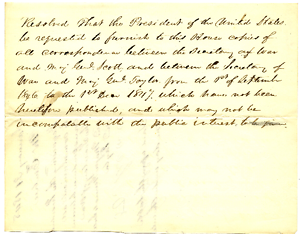 Resolved That the President of the United States
be requested to furnish to this House copies of
all correspondence between the Secretary of War
and Maj Genl. Scott and between the Secretary of
War and Maj Genl Taylor from the of September
1846 to the 1st Dec 1847, which have not been
heretofore published, and which may not be
incompatible with the public interest,